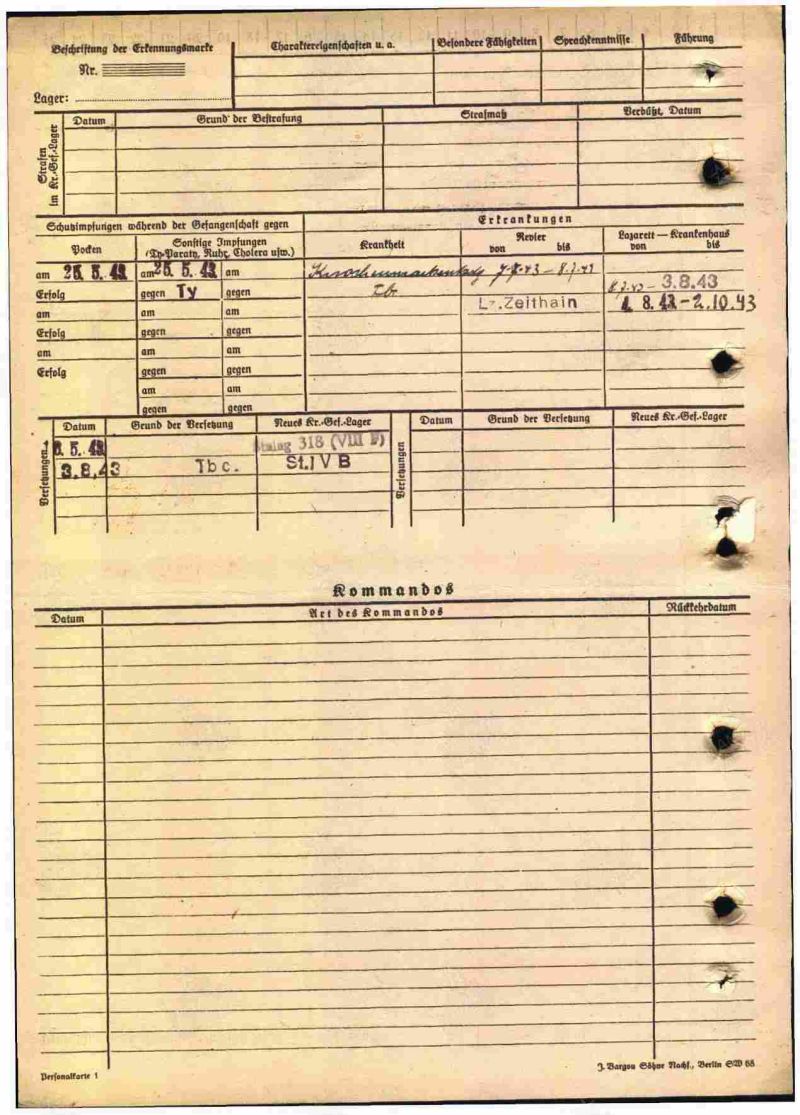 Beschriftung der Erkennungsmarke
Nr.
Lager:
Charaktereigenschaften u. a.
Besondere Fähigkeiten
Sprachkenntnisse
Führung
Strafen
im Kr.-Gef.-Lager
Datum
Grund der Bestrafung
Strafmaß
Verbüßt, Datum
Schutzimpfungen während der Gefangenschaft gegen
Erkrankungen
Pocken
Sonstige Impfungen
(Ty-Paraty, Ruhr, Cholera usw.)
Krankheit
Revier
von bis
Lazarett — Krankenhaus
von bis
am 25. 5. 43 am 25. 5. 43 am
7.7.43 – 8.7.43
Erfolg gegen Ty gegen
Tb
8.7.43 – 3.8.43
am am am
Lz. Zeithain
8. 43 – 2.10.43
Erfolg gegen gegen
am am am
Erfolg gegen gegen
am am
gegen gegen
Versetzungen
Datum
Grund der Versetzung
Neues Kr.-Gef.-Lager
5. 43 Stalag 318 (VIII F)
3.8.43 Tbc. St.IV B
Versetzungen
Datum
Grund der Versetzung
Neues Kr.-Gef.-Lager
Kommandos
Datum
Art des Kommandos
Rückkehrdatum
Personalkarte 1
J. Bargou Söhne Nachf., Berlin SW 68